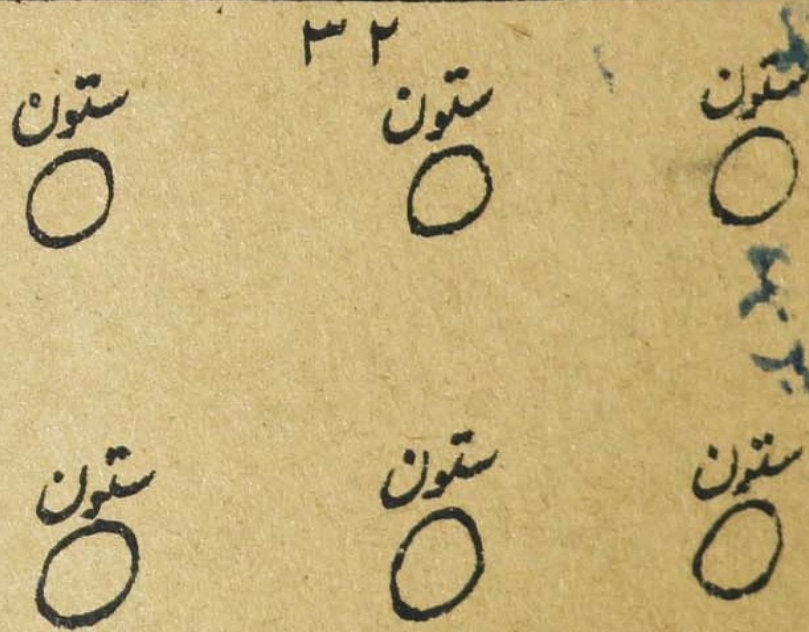 ۳۲
ستون ستون ستون
ستون ستون ستون